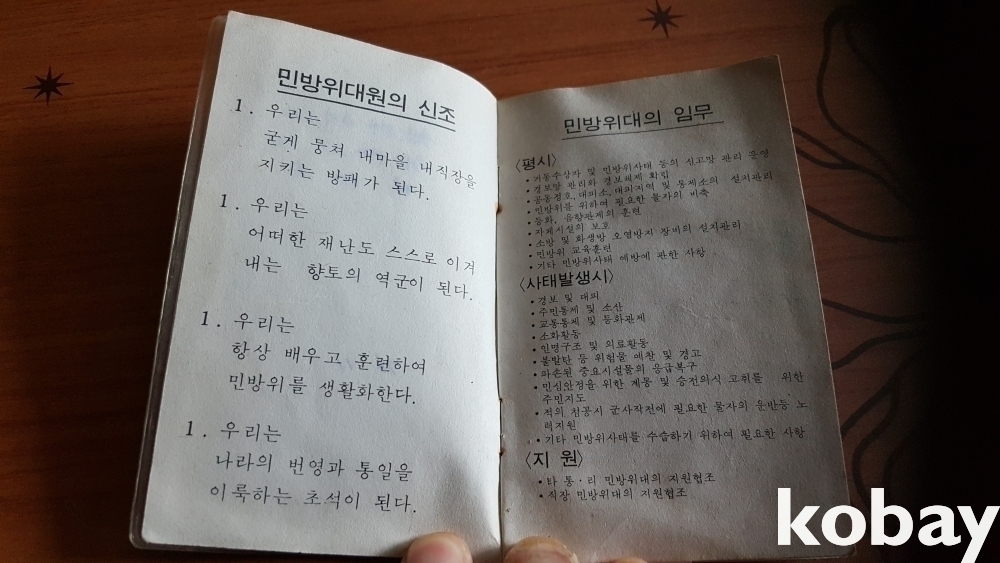 민방위대원의 신조
1. 우리는
굳게 뭉쳐 내마을 내직장을
지키는 방패가 된다.
1. 우리는
어떠한 재난도 스스로 이겨
내는 향토의 역군이 된다.
1. 우리는
항상 배우고 훈련하여
민방위를 생활화한다.
1. 우리는
나라의 번영과 통일을
이룩하는 초석이 된다.
민방위대의 임무
〈평시〉
• 거동수상자 및 민방위사태 등의 신고망 관리 운영
• 경보망 관리와 경보체제 확립
• 공동정호, 대피소, 대피지역 및 통제소의 설치관리
• 민방위를 위하여 필요한 물자의 비축
• 등화, 음향관제의 훈련
• 자체시설의 보호
• 소방 및 화생방 오염방지 장비의 설치관리
• 민방위 교육훈련
• 기타 민방위사태 예방에 관한 사항
〈사태발생시〉
• 경보 및 대피
• 주민통제 및 소산
• 교통통제 및 등화관제
• 소화활동
• 인명구조 및 의료활동
• 불발탄 등 위험물 예찰 및 경고
• 파손된 중요시설물의 응급복구
• 민심안정을 위한 계몽 및 승전의식 고취를 위한
주민지도
• 적의 침공시 군사작전에 필요한 물자의 운반등 노
력지원
• 기타 민방위사태를 수습하기 위하여 필요한 사항
〈지 원〉
• 타 통·리 민방위대의 지원협조
• 직장 민방위대의 지원협조
kobay